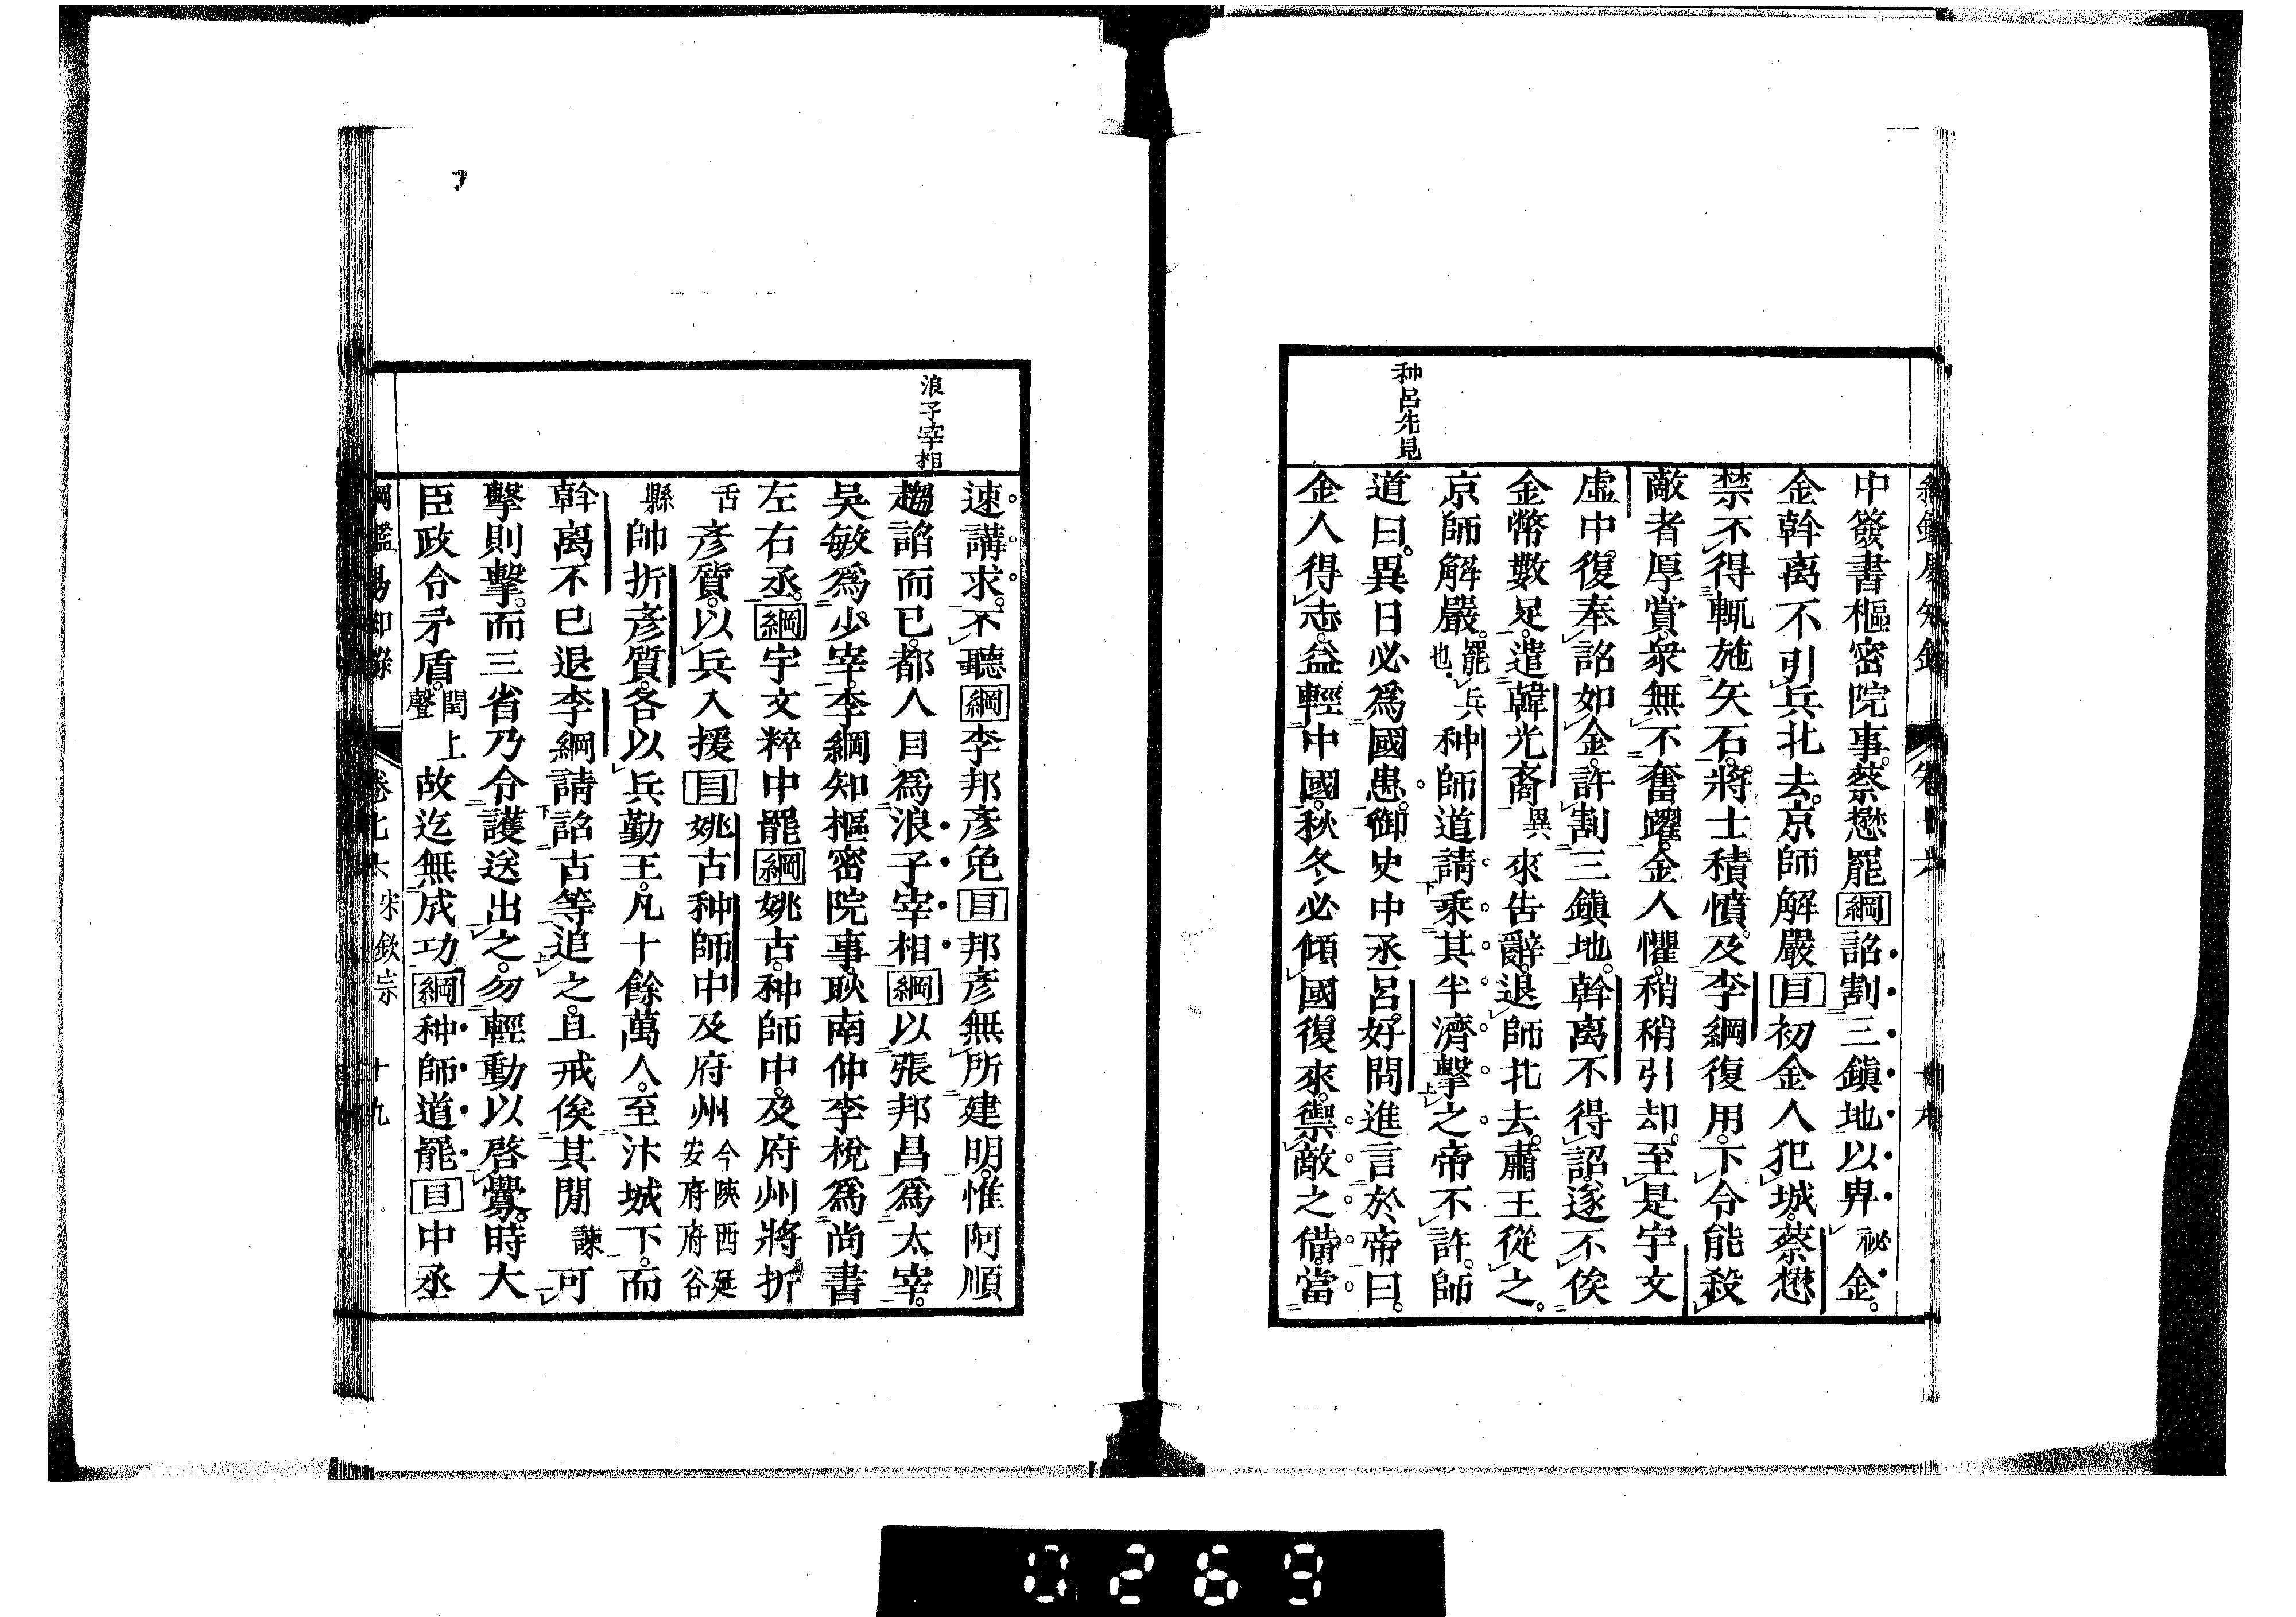 种呂先見
中簽書樞密院事。蔡懋罷綱詔割三鎮地以畀祕金。
金斡离不引兵北去。京師解嚴目初金人犯城。蔡懋
禁不得輒施矢石。將士積憤。及李綱復用。下令能殺
敵者厚賞。衆無不奮躍。金人懼。稍稍引却。至是宇文
虛中復奉詔如金。許割三鎮地。斡离不得詔。遂不俟
金幣數足。遣韓光裔異來告辭。退師北去。肅王從之。
京師解嚴。罷兵也。种師道請乘其半濟擊之。帝不許。師
道曰。異日必爲國患。御史中丞呂好問進言於帝曰。
金人得志。益輕中國。秋冬必傾國復來。禦敵之備。當
浪子宰相
速講求。不聽綱李邦彥免目邦彥無所建明。惟阿順
趨諂而已。都人目爲浪子宰相綱以張邦昌爲太宰。
吳敏爲少宰。李綱知樞密院事。耿南仲李梲爲尚書
左右丞。綱宇文粹中罷綱姚古。种師中。及府州將折
舌彥質。以兵入援目姚古种師中及府州今陝西延安府府谷
縣帥折彥質。各以兵勤王。凡十餘萬人。至汴城下。而
斡离不已退李綱請詔古等追之。且戒俟其閒諫可
擊則擊。而三省乃令護送出之。勿輕動以啓釁。時大
臣政令矛盾。閏上聲故迄無成功綱种師道罷目中丞
綱鑑易知錄 卷七六 宋欽宗 十九
0269